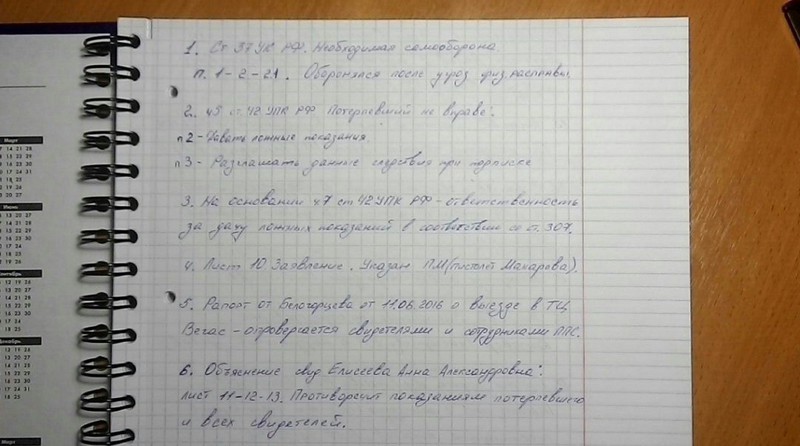 Март
Июнь
Сентябрь
Декабрь
Март
1. Ст 37 УК РФ. Необходимая самооборона.
п. 1-2-2.1. Оборонялся после угроз физ. расправы
2. ч5 ст. 42 УПК РФ Потерпевший не вправе:
п2 - Давать ложные показания.
п3 - Разглашать данные следствия при подписке
3. На основании ч7 ст 42 УПК РФ - ответственность
за дачу ложных показаний в соответствии со ст. 307.
4. Лист 10 Заявление. Указан ПМ (пистолет Макарова).
5. Рапорт от Белогорцева от 11.06.2016 о выезде в ТЦ
Вегас - опровергается свидетелями и сотрудниками ППС.
6. Объяснение свид Елисеева Анна Александровна:
лист 11-12-13. Противоречит показаниям потерпевшего
и всех свидетелей.